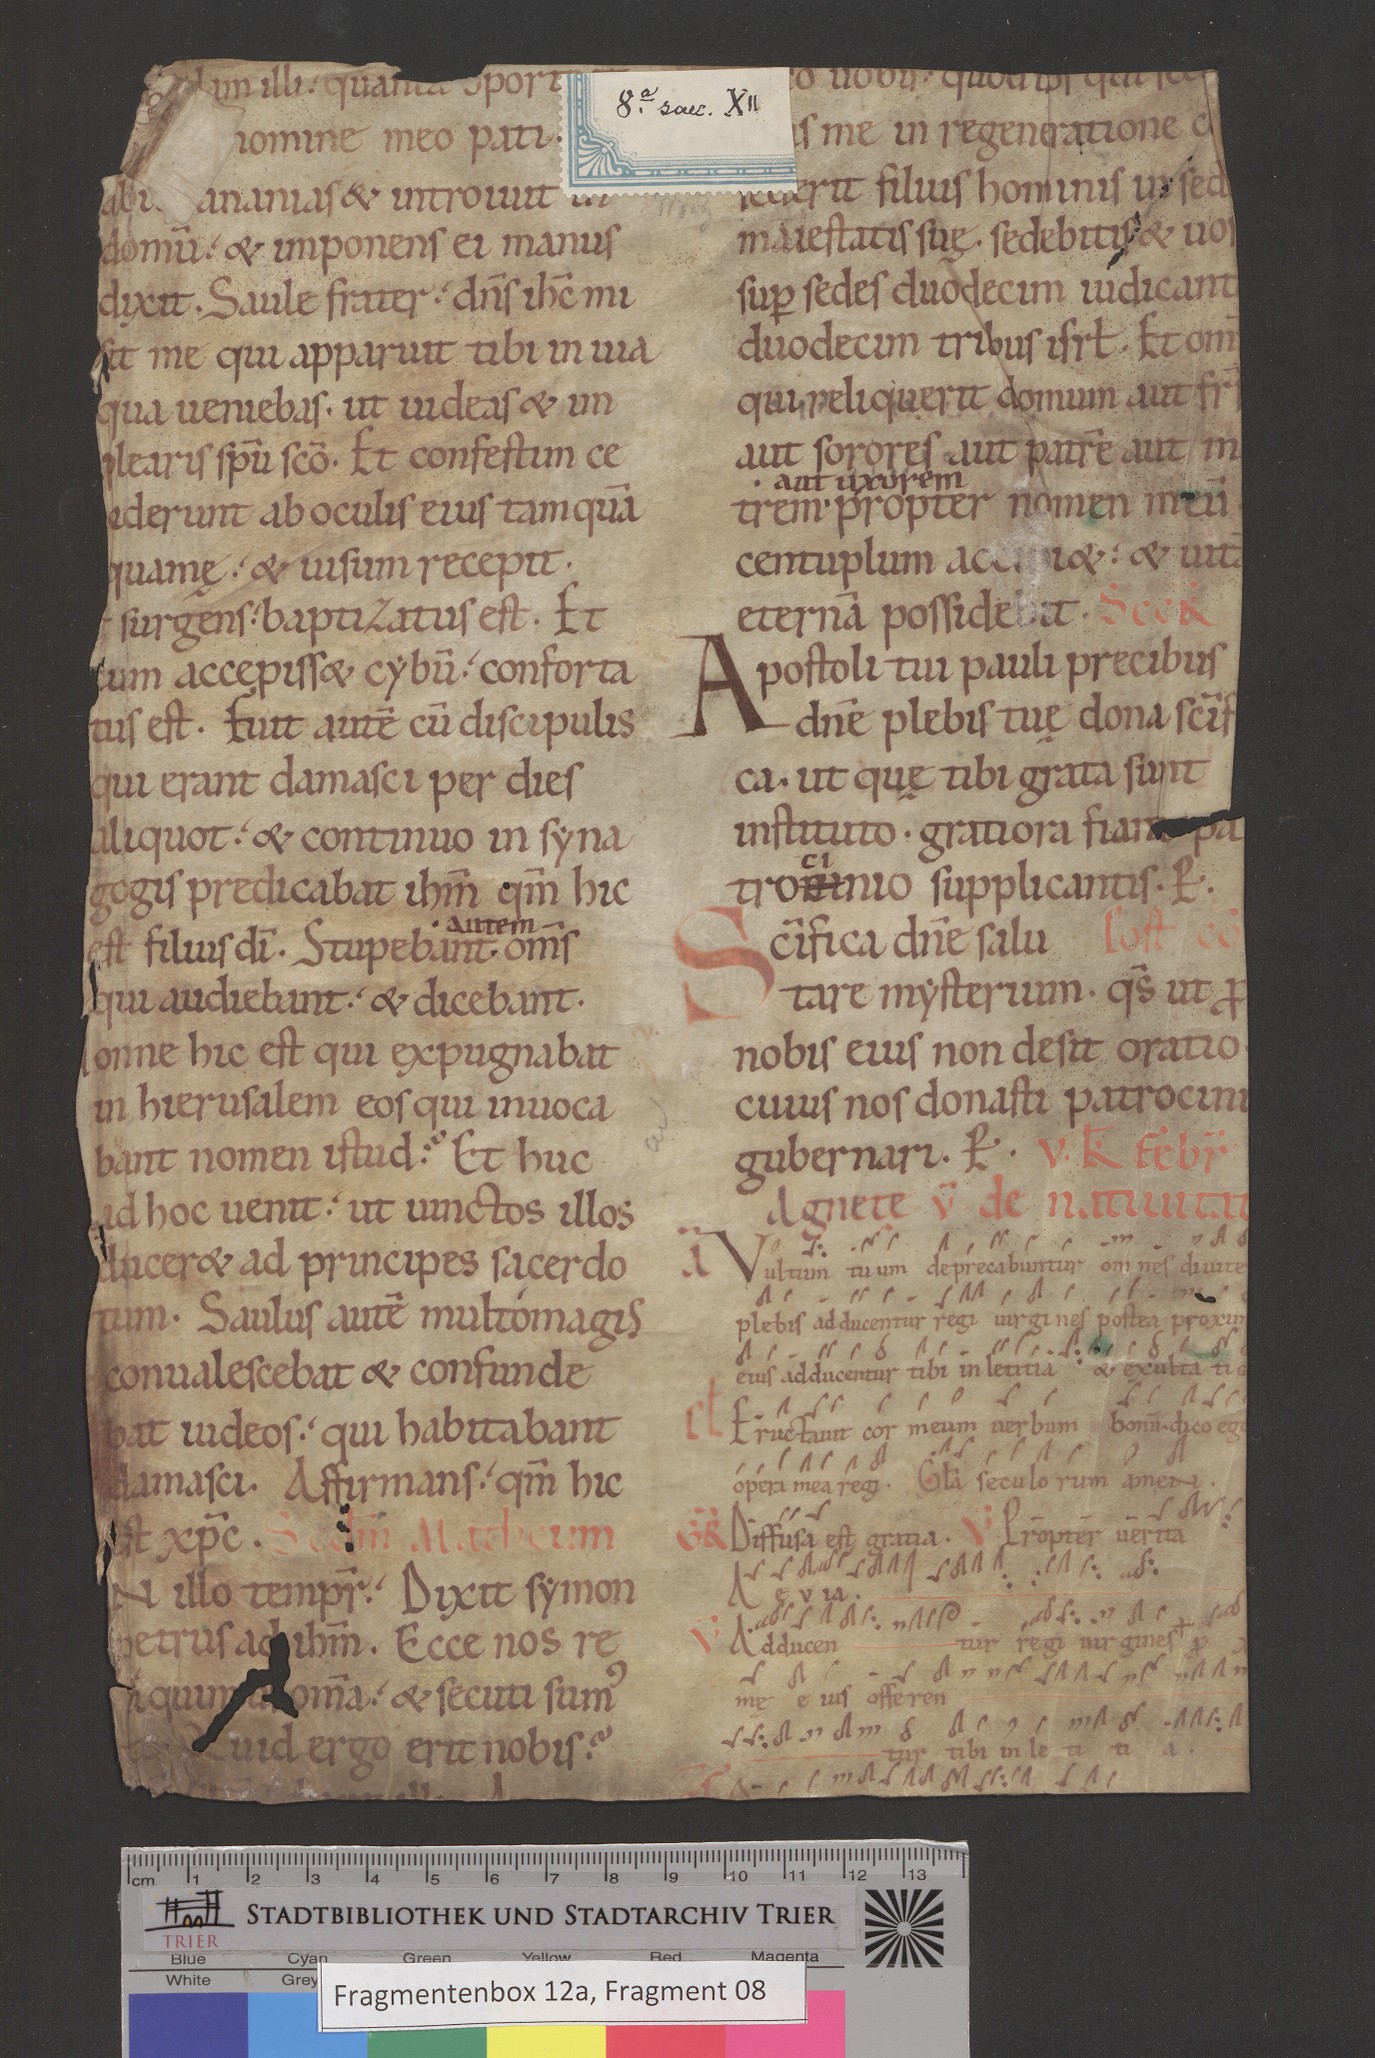 illi: quanta oport
nomine meo pati.
ananias & introiuit in
domū: & imponens ei manus
dixit. Saule frater: dn̄s ih̄c mi
sit me qui apparuit tibi in uia
qua ueniebas. ut uideas & im
plearis sp̄u sc̄o. Et confestim ce
ciderunt ab oculis eius tamquā
squamę: & uisum recepit.
surgens: baptizatus est. Et
cum accepiss& cybū: conforta
tus est. Fuit autē cū discipulis
qui erant damasci per dies
aliquot: & continuo in syna
gogis predicabat ih̄m qm̄ hic
est filius dī. Stupebant autem om̄s
qui audiebant: & dicebant.
onne hic est qui expugnabat
in hierusalem eos qui inuoca
bant nomen istud? Et huc
ad hoc uenit: ut uinctos illos
ducer& ad principes sacerdo
tum. Saulus autē multo magis
conualescebat & confunde
bat iudeos: qui habitabant
damasci. Affirmans: qm̄ hic
est xp̄c. Sec̄dm Matheum
N illo tempr̄: Dixit symon
petrus ad ih̄m. Ecce nos re
liquim om̄a: & secuti sum⁹
Quid ergo erit nobis?
uobis quod
me in regeneratione
sederit filius hominis in sed
maiestatis suę. sedebitis & uos
sup̱ sedes duodecim iudicant
duodecim tribus isrł. Et om̄
qui reliquerit domum aut fr̄
aut sorores aut patrē aut m
trem. aut uxorem propter nomen meū
centuplum acci&: & uitā
eternā possidebit. Secr̄
Apostoli tui pauli precibus
dn̄e plebis tuę dona sc̄if
ca. ut quę tibi grata sunt
instituto. gratiora fiant pa
trocinio supplicantis. P̱.
Sc̄ifica dn̄e salu Post cō
tare mysterium. qs̄ ut ꝓ
nobis eius non desit oratio.
cuius nos donasti patrocini
gubernari. P̱. v. k̄ febr̄
Agnete v̄ de natiuitat
ā Vultum tuum deprecabuntur omnes diuite
plebis adducentur regi uirgines postea proxim
eius adducentur tibi in letitia & exulta ti o
Eructauit cor meum uerbum bonū. dico ego
opera mea regi. Gła seculorum amen.
GR̄ Diffusa est gratia. V̄ Propter uerita
A e v ia.
V̄ Adducen tur regi uirgines p̱
mę e ius offeren
tur tibi in le ti ti a.
8ª. saec. XII
cm 1 2 3 4 5 6 7 8 9 10 11 12 13
TRIER
STADTBIBLIOTHEK UND STADTARCHIV TRIER
Blue Cyan Green Yellow Red Magenta
White Grey
Fragmentenbox 12a, Fragment 08